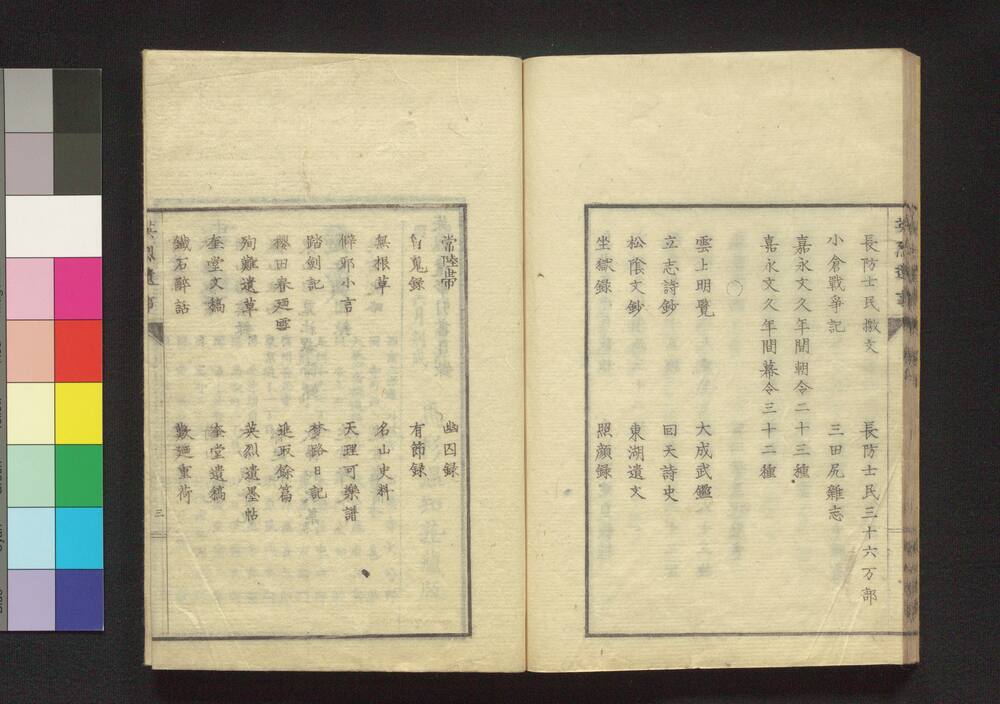 長防士民檄文　長防士民三十六万部
小倉戰爭記　三田尻雜志
嘉永文久年間朝令二十三種
嘉永文久年間幕令三十二種
〇
雲上明覽　大成武鑑
立志詩鈔　回天詩史
松陰文鈔　東湖遺文
坐獄錄　照顏錄
常陸帶　幽囚録
鬼録　有節録
無根草　名山史料
僻邪小言　天理可樂譜
踏劍記　夢路日記
櫻田春廼雪　進取餘篇
殉難遺草　英烈遺墨帖
奎堂文稿　奎堂遺稿
鐵石醉話　歎廼重荷
三